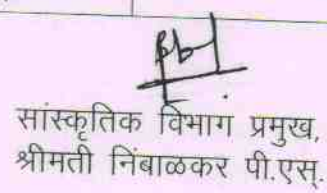 सांस्कृतिक विभाग प्रमुख,
श्रीमती निंबाळकर पी.एस.